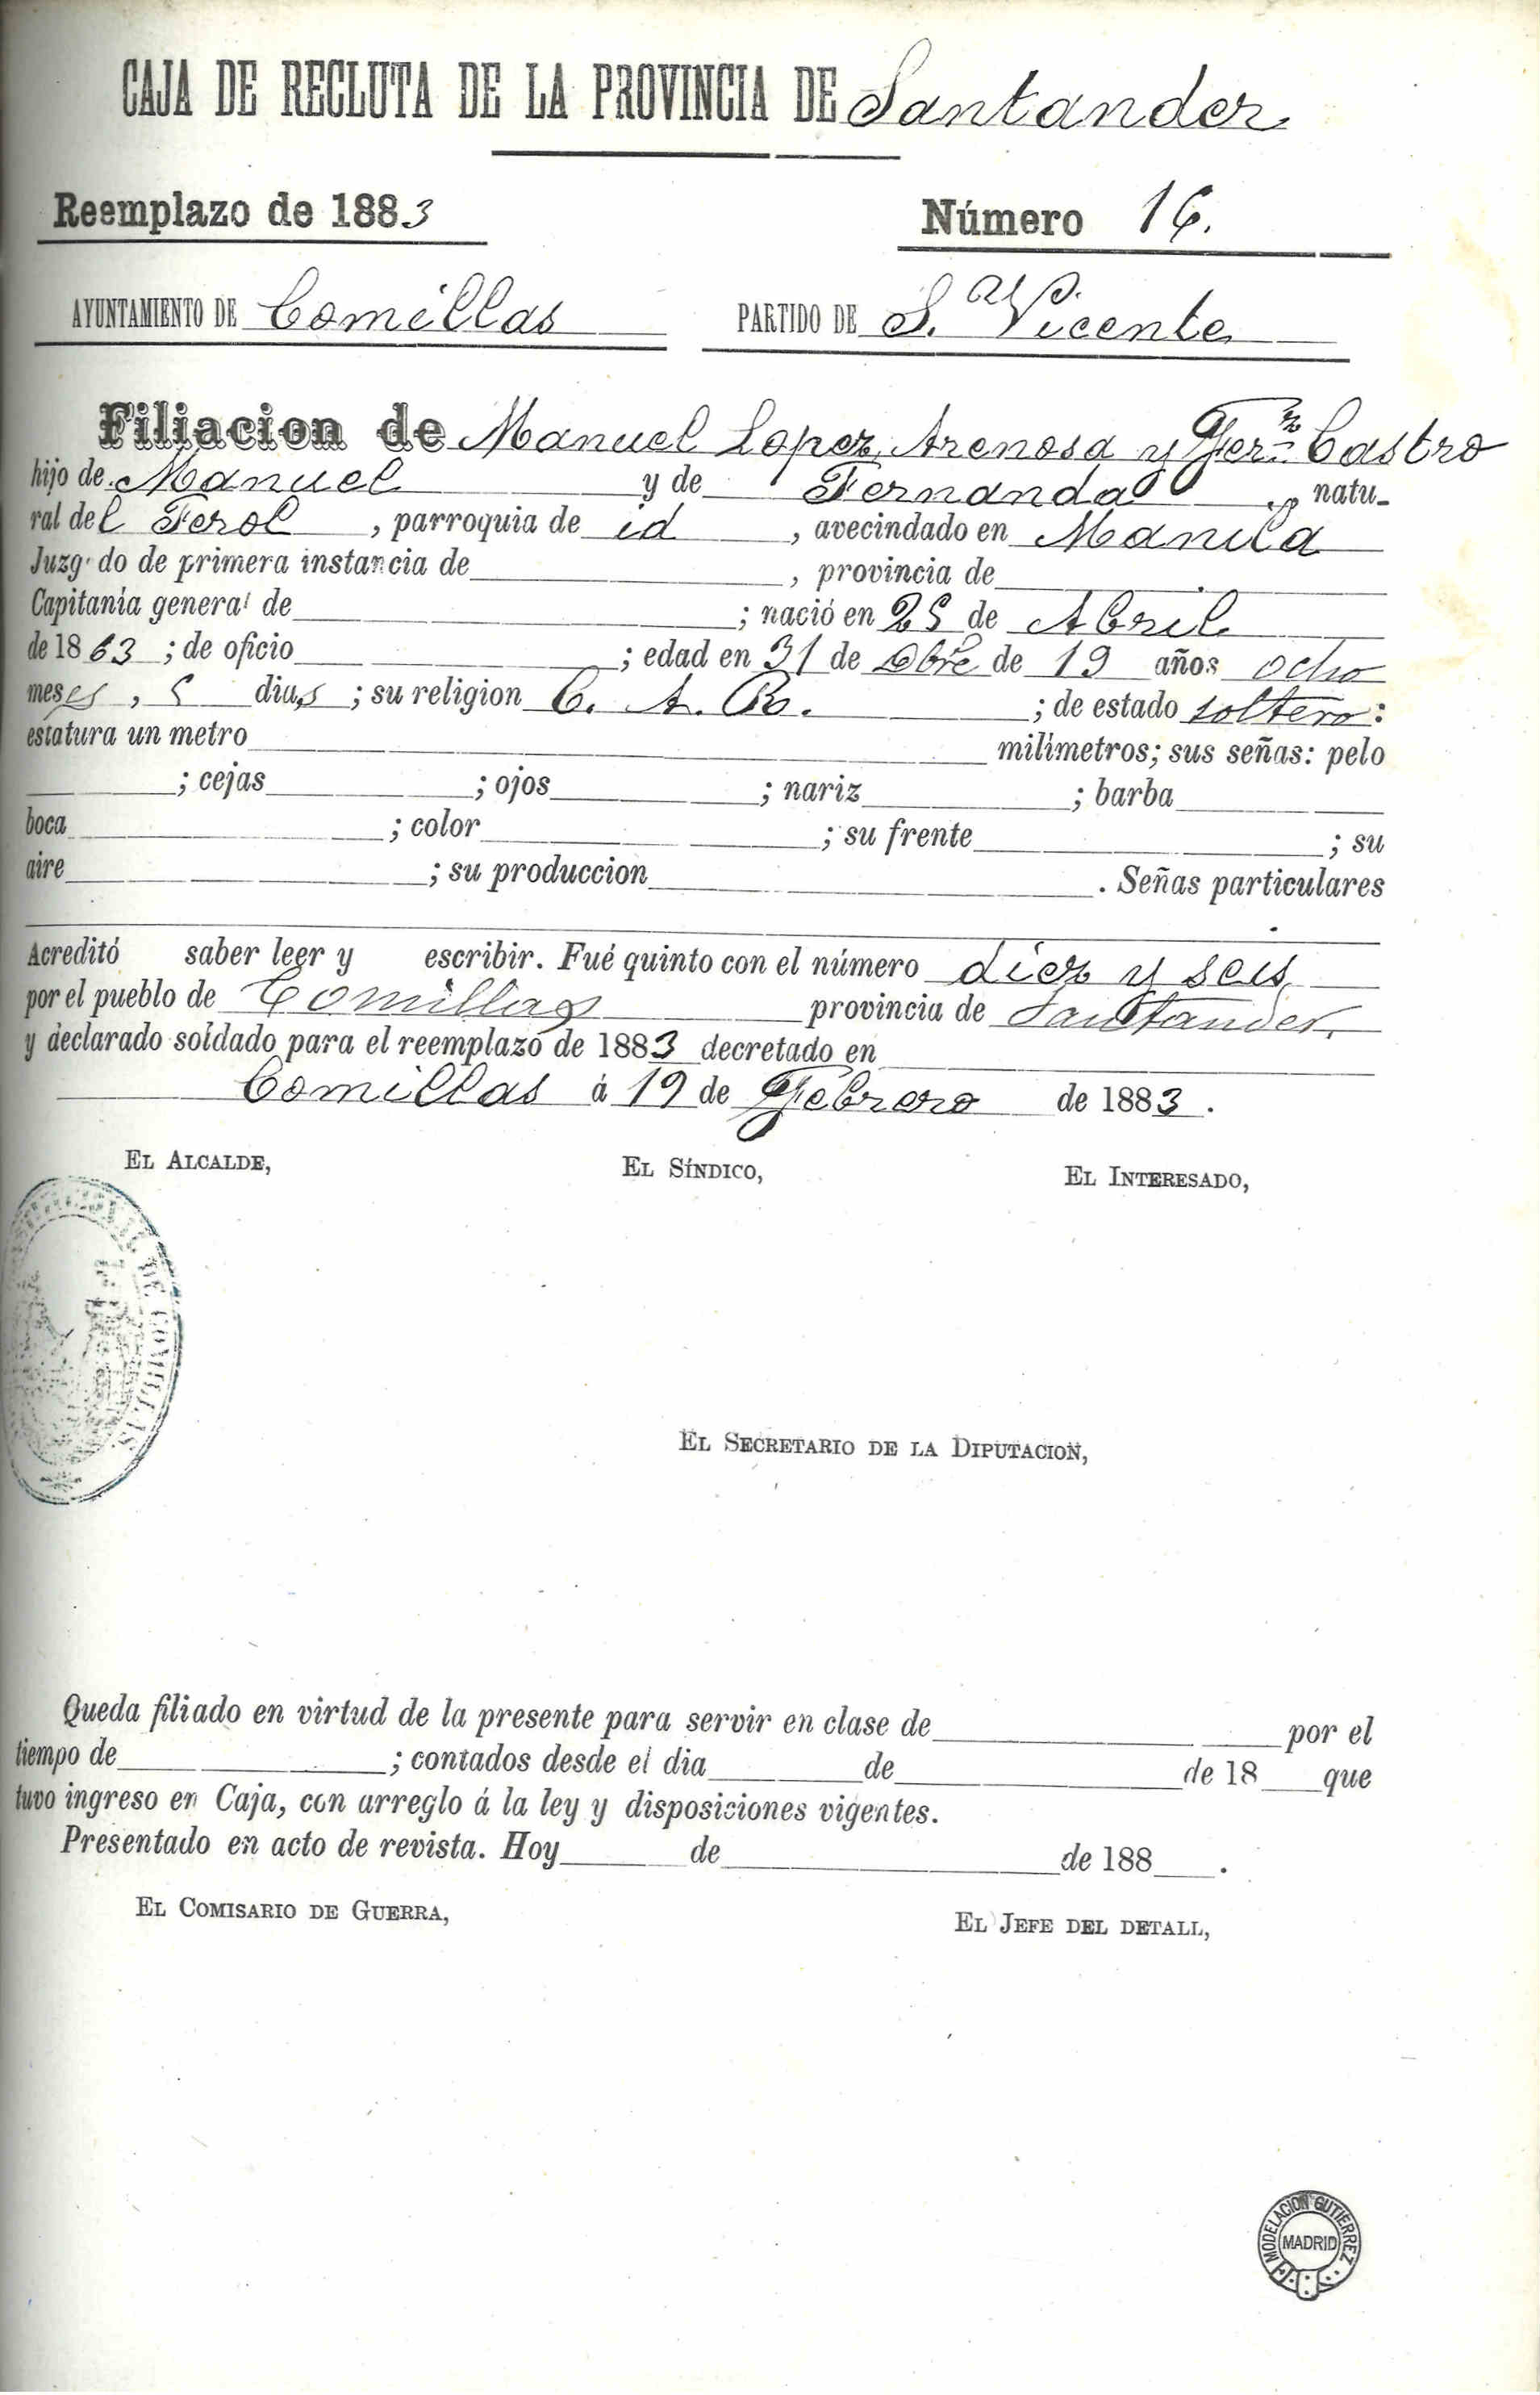 CAJA DE RECLUTA DE LA PROVINCIA DE Santander
Reemplazo de 1883 Número 16.
AYUNTAMIENTO DE Comillas PARTIDO DE S. Vicente
Filiacion de Manuel Lopez Arenosa y Fern.z Castro
hijo de Manuel y de Fernanda, natu-
ral del Ferol, parroquia de id, avecindado en Manila
Juzgado de primera instancia de , provincia de
Capitanía general de ; nació en 25 de Abril
de 1863; de oficio ; edad en 31 de Dbre de 19 años ocho
meses, 5 dias; su religion C. A. R. ; de estado soltero:
estatura un metro milímetros; sus señas: pelo
; cejas ; ojos ; nariz ; barba
boca ; color ; su frente ; su
aire ; su produccion . Señas particulares
Acreditó saber leer y escribir. Fué quinto con el número diez y seis
por el pueblo de Comillas provincia de Santander,
y declarado soldado para el reemplazo de 1883 decretado en
Comillas á 19 de Febrero de 1883.
EL ALCALDE, EL SÍNDICO, EL INTERESADO,
DE COMILLAS
EL SECRETARIO DE LA DIPUTACION,
Queda filiado en virtud de la presente para servir en clase de por el
tiempo de ; contados desde el dia de de 18 que
tuvo ingreso en Caja, con arreglo á la ley y disposiciones vigentes.
Presentado en acto de revista. Hoy de de 188 .
EL COMISARIO DE GUERRA, EL JEFE DEL DETALL,
MODELACION GUTIERREZ
MADRID